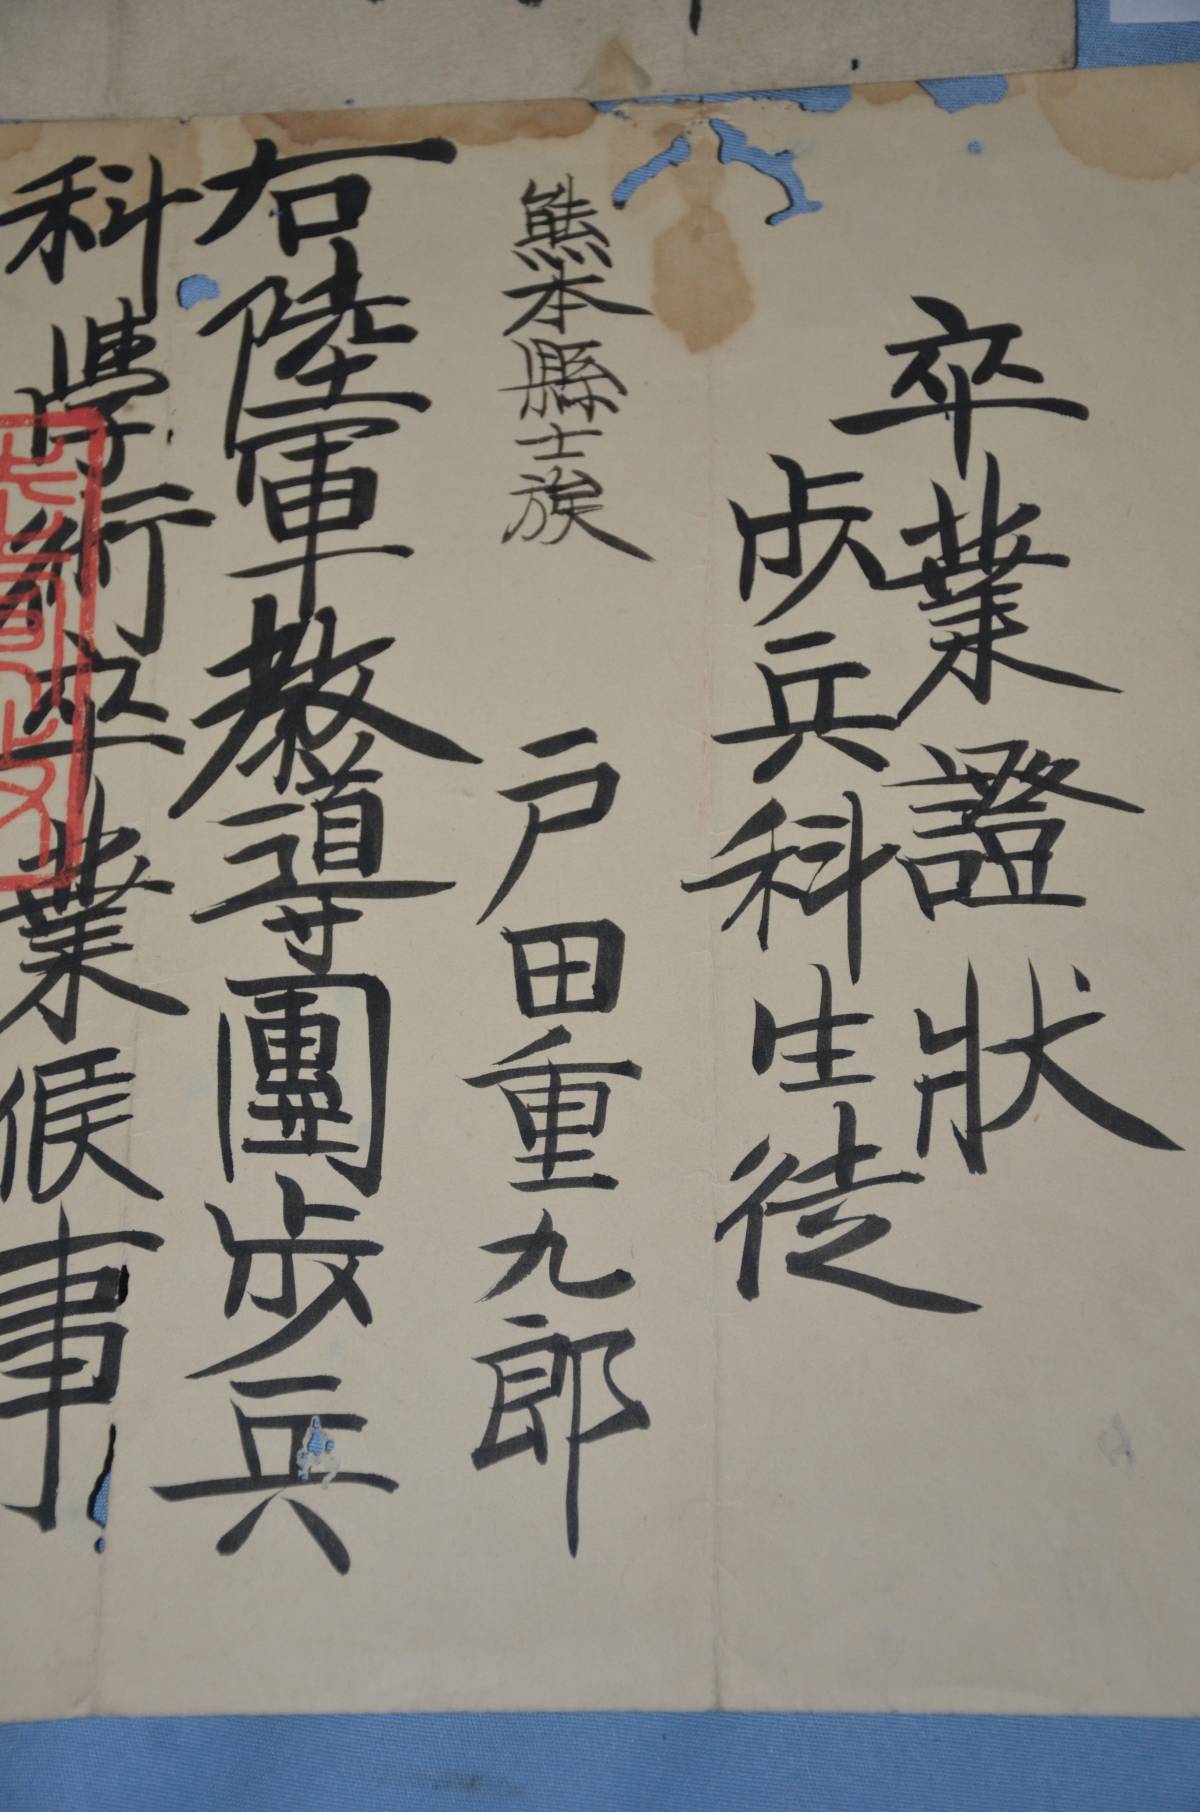 卒業證狀
歩兵科生徒
熊本縣士族
戸田重九郎
右陸軍教導團歩兵
科學術卒業候事